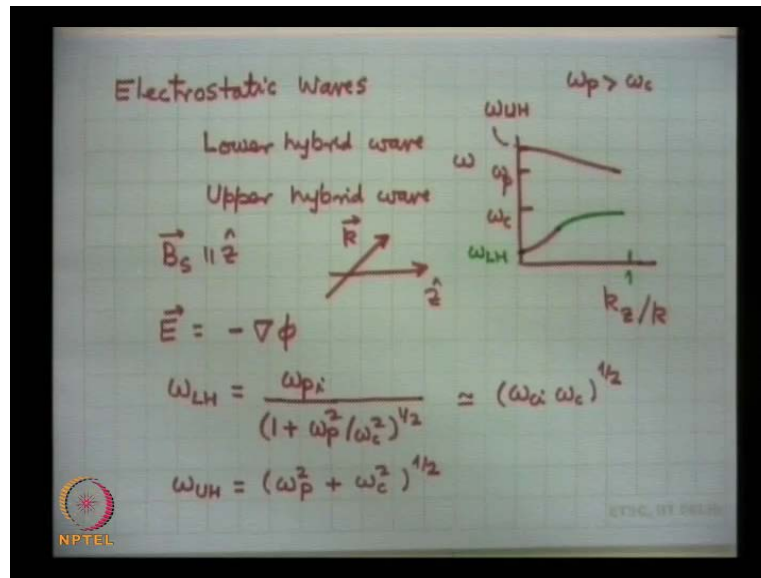 Electrostatic Waves
ωp > ωc
Lower hybrid wave
Upper hybrid wave
ωUH
ω
ωp
ωc
ωLH
1
kz/k
B⃗s ∥ ẑ
k⃗
ẑ
E⃗ = - ∇ϕ
ωLH = ωpi / (1 + ωp²/ωc²)^1/2 ≃ (ωci ωc)^1/2
ωUH = (ωp² + ωc²)^1/2
NPTEL
ETSC, IIT DELHI